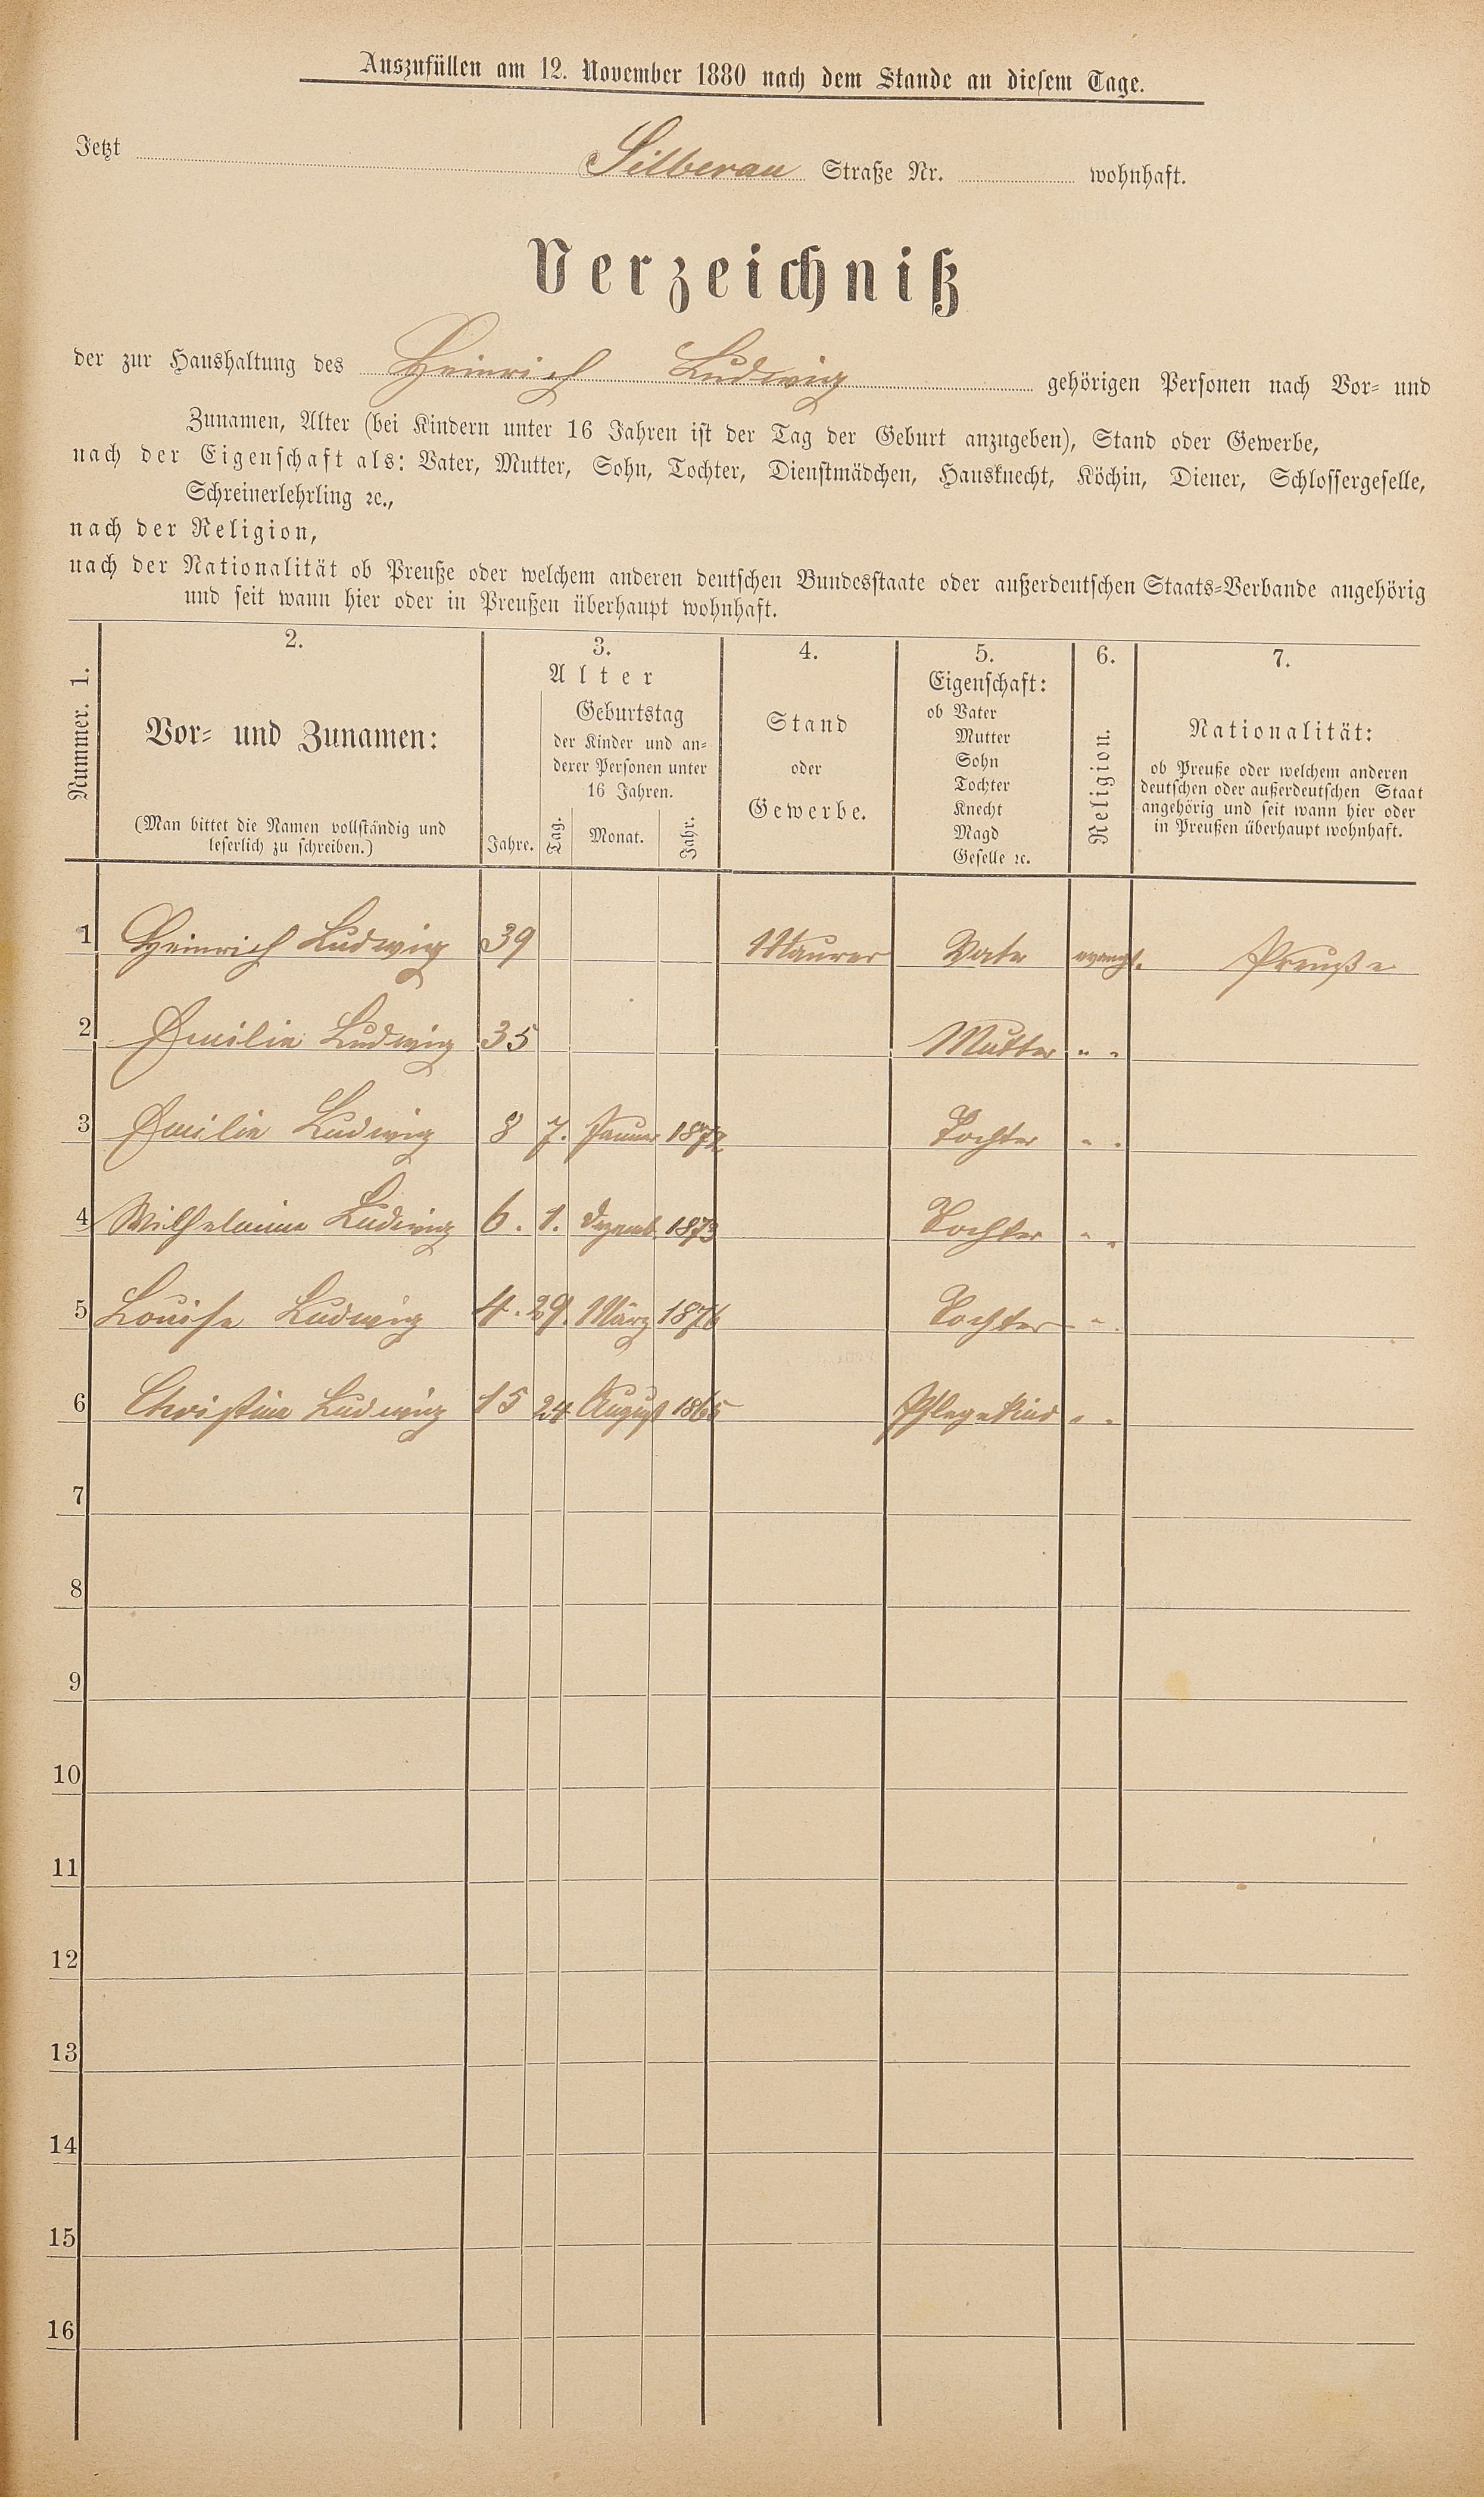 Auszufüllen am 12. November 1880 nach dem Stande an diesem Tage.
Jetzt Silberau Straße Nr. wohnhaft.
Verzeichniß
der zur Haushaltung des Heinrich Ludwig gehörigen Personen nach Vor- und
Zunamen, Alter (bei Kindern unter 16 Jahren ist der Tag der Geburt anzugeben), Stand oder Gewerbe,
nach der Eigenschaft als: Vater, Mutter, Sohn, Tochter, Dienstmädchen, Hausknecht, Köchin, Diener, Schlossergeselle,
Schreinerlehrling ꝛc.,
nach der Religion,
nach der Nationalität ob Preuße oder welchem anderen deutschen Bundesstaate oder außerdeutschen Staats-Verbande angehörig
und seit wann hier oder in Preußen überhaupt wohnhaft.
Nummer. 1.
2.
Vor- und Zunamen:
(Man bittet die Namen vollständig und
leserlich zu schreiben.)
3.
Alter
Jahre.
Geburtstag
der Kinder und an-
derer Personen unter
16 Jahren.
Tag. Monat. Jahr.
4.
Stand
oder
Gewerbe.
5.
Eigenschaft:
ob Vater
Mutter
Sohn
Tochter
Knecht
Magd
Geselle ꝛc.
6.
Religion.
7.
Nationalität:
ob Preuße oder welchem anderen
deutschen oder außerdeutschen Staat
angehörig und seit wann hier oder
in Preußen überhaupt wohnhaft.
1 Heinrich Ludwig 39 Maurer Vater evangl. Preuße
2 Emilie Ludwig 35 Mutter " "
3 Emilie Ludwig 8 7. Januar 1872 Tochter " "
4 Wilhelmine Ludwig 6. 1. Dezemb. 1873 Tochter " "
5 Louise Ludwig 4. 29. März 1876 Tochter " "
6 Christine Ludwig 15 24 August 1865 Pflegekind " "
7
8
9
10
11
12
13
14
15
16